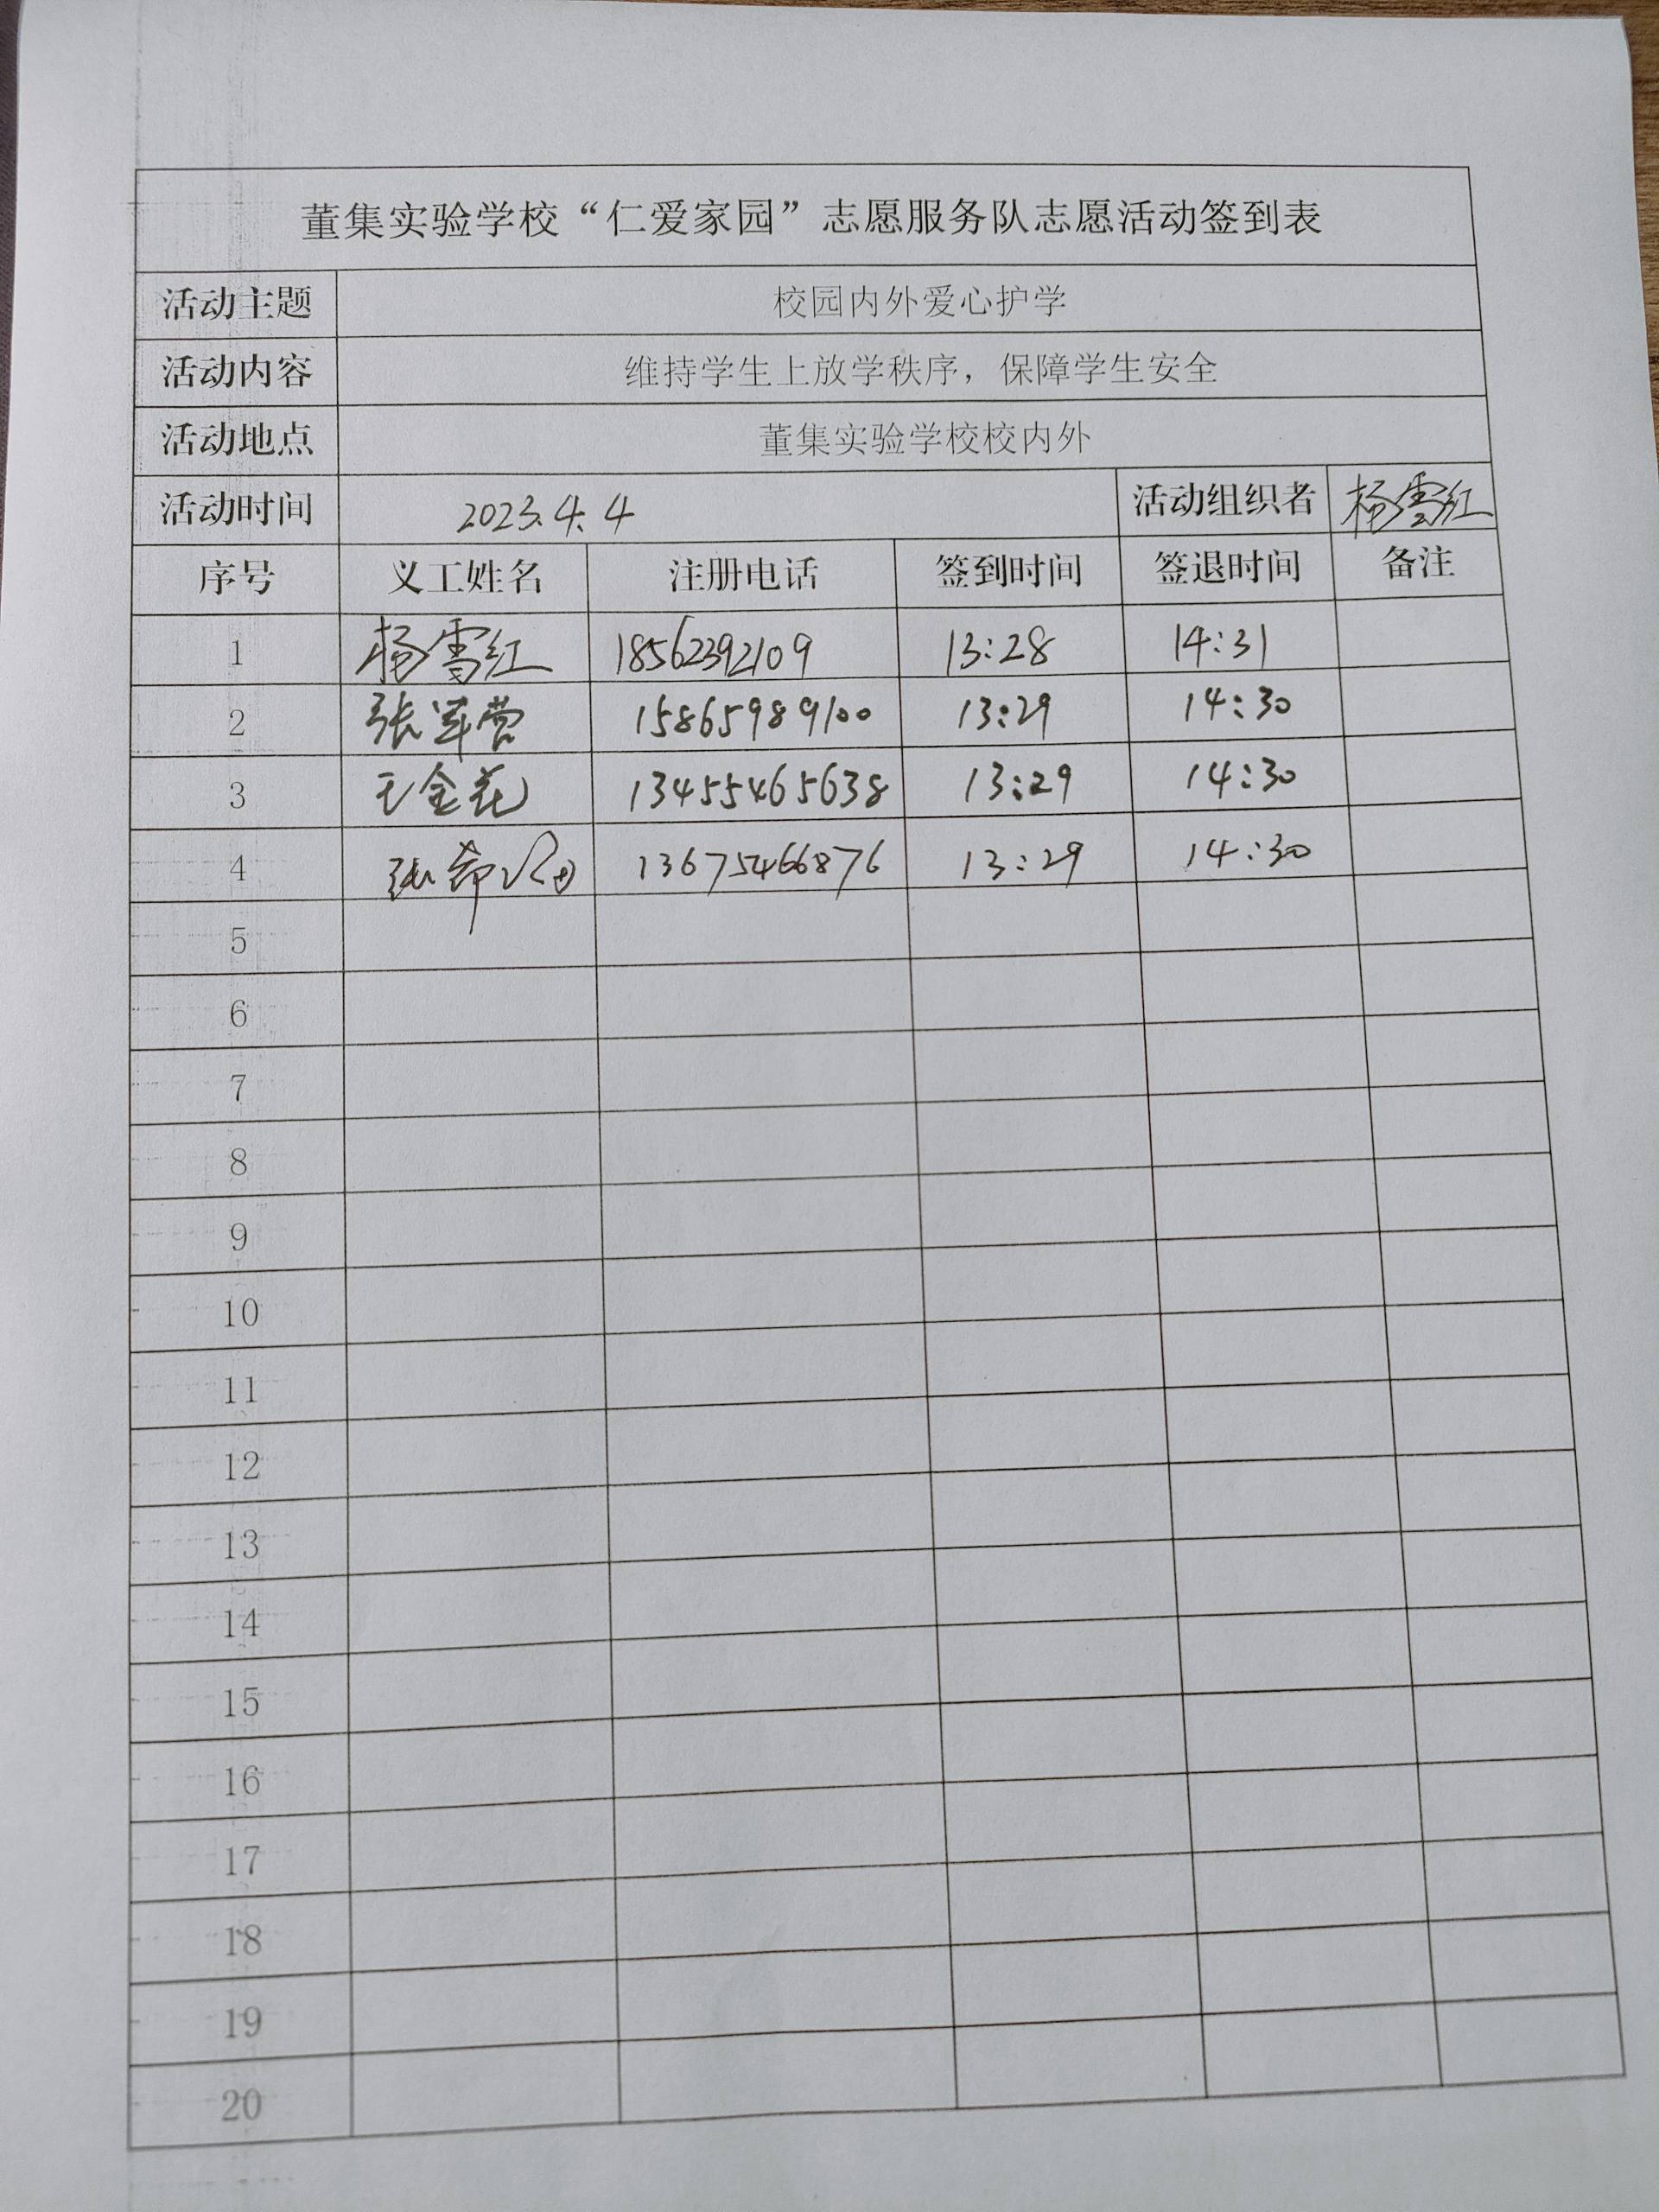 董集实验学校“仁爱家园”志愿服务队志愿活动签到表
活动主题 校园内外爱心护学
活动内容 维持学生上放学秩序，保障学生安全
活动地点 董集实验学校校内外
活动时间 2023.4.4 活动组织者 杨雪红
序号 义工姓名 注册电话 签到时间 签退时间 备注
1 杨雪红 18562392109 13:28 14:31
2 张军营 15865989100 13:29 14:30
3 王金花 13455465638 13:29 14:30
4 13675466876 13:29 14:30
5
6
7
8
9
10
11
12
13
14
15
16
17
18
19
20